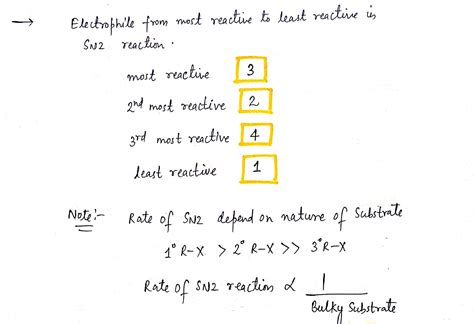 → Electrophile from most reactive to least reactive in
SN2 reaction.
most reactive 3
2nd most reactive 2
3rd most reactive 4
least reactive 1
Note:- Rate of SN2 depend on nature of Substrate
1° R-X > 2° R-X >> 3° R-X
Rate of SN2 reaction ∝ 1
Bulky Substrate